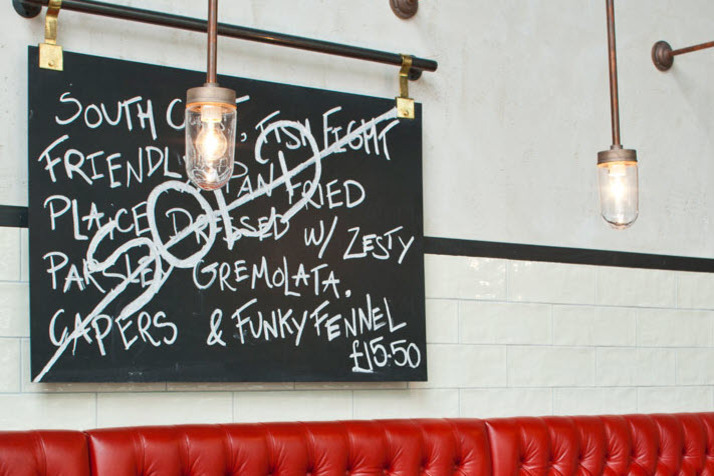 SOUTH COAST, FISH FIGHT
FRIENDLY PAN FRIED
PLAICE DRESSED W/ ZESTY
PARSLEY GREMOLATA.
CAPERS & FUNKY FENNEL
£15.50
SOLD